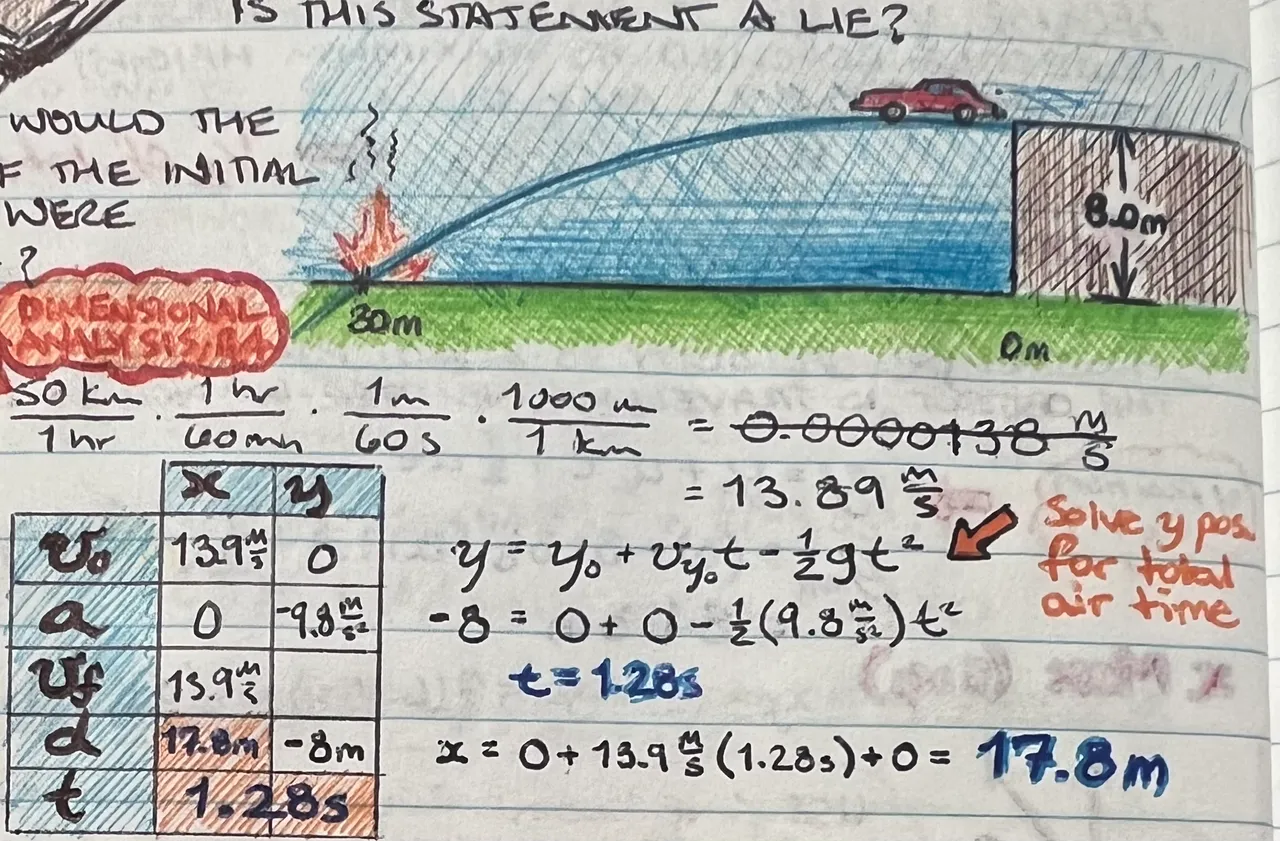 IS THIS STATEMENT A LIE?
WOULD THE
F THE INITIAL
WERE
?
8.0m
30m
0m
DIMENSIONAL
ANALYSIS
50 km / 1 hr · 1 hr / 60 min · 1 m / 60 s · 1000 m / 1 km = 0.0000138 m/s
= 13.89 m/s
x y
v₀ 13.9 m/s 0
a 0 -9.8 m/s²
v_f 13.9 m/s
d 17.8m -8m
t 1.28s
y = y₀ + v_y₀ t - ½gt²
Solve y pos.
for total
air time
-8 = 0 + 0 - ½(9.8 m/s²)t²
t = 1.28s
x = 0 + 13.9 m/s (1.28s) + 0 = 17.8m